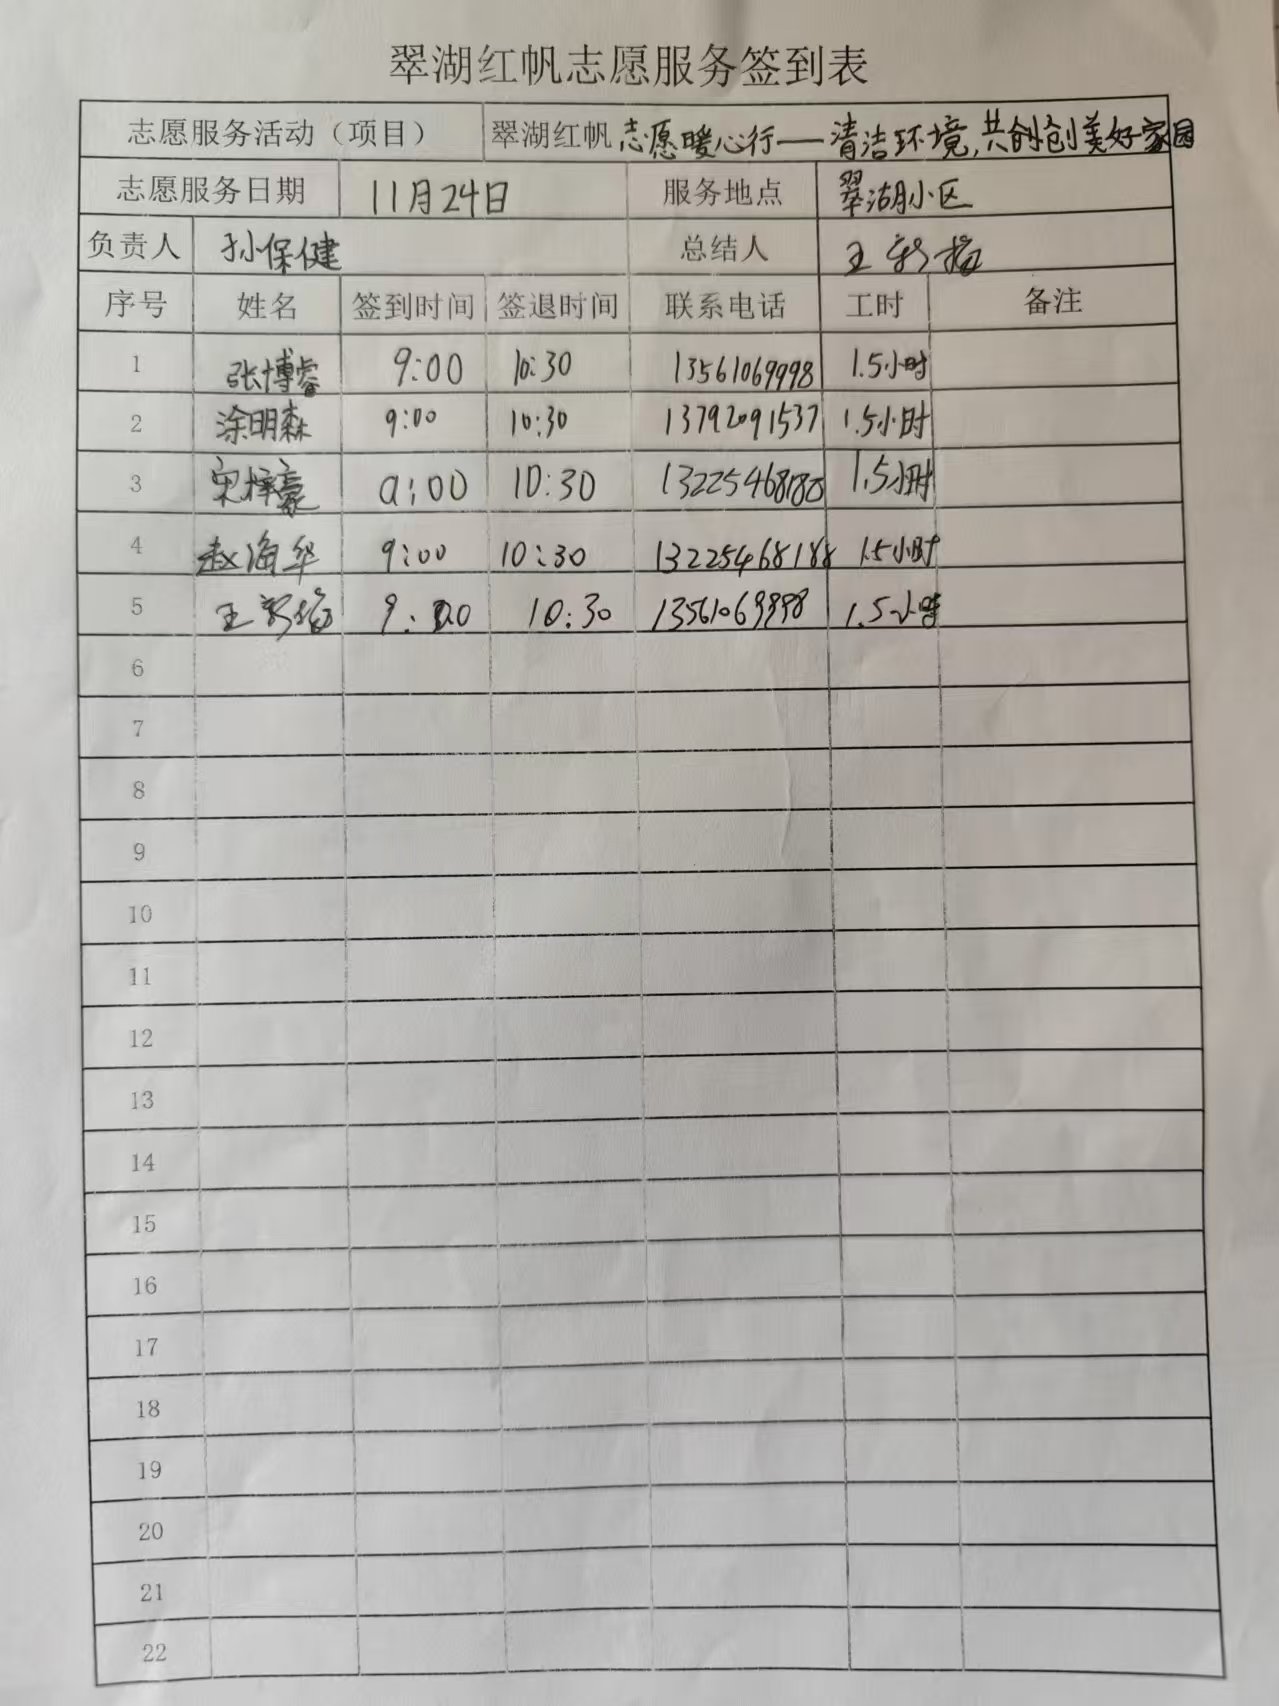 翠湖红帆志愿服务签到表
志愿服务活动（项目） 翠湖红帆 志愿暖心行——清洁环境,共创创美好家园
志愿服务日期 11月24日 服务地点 翠湖小区
负责人 孙保健 总结人 王新梅
序号 姓名 签到时间 签退时间 联系电话 工时 备注
1 张博睿 9:00 10:30 13561069998 1.5小时
2 涂明森 9:00 10:30 13792091537 1.5小时
3 宋梓豪 9:00 10:30 1.5小时
4 赵海华 9:00 10:30 13225468188 1.5小时
5 王新梅 9:00 10:30 13561069998 1.5小时
6
7
8
9
10
11
12
13
14
15
16
17
18
19
20
21
22